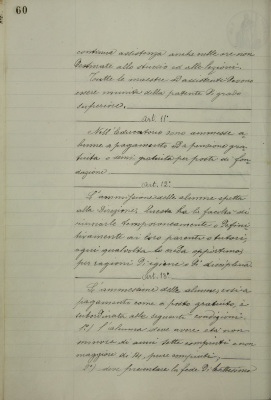 60
continua assistenza anche nelle ore non
destinate allo studio ed alle lezioni.
Tutte le maestre ed assistenti devono
essere munite della patente di grado
superiore.
Art. 11°
Nell'Educatorio sono ammesse a-
lunne a pagamento ed a pensione gra-
tuita o semi gratuita per posti di fon-
dazione.
Art. 12°
L'ammissione delle alunne spetta
alla Direzione; questa ha la facoltà di
rinviarle temporaneamente o defini-
tivamente ai loro parenti o tutori,
ogni qualvolta lo creda opportuno
per ragioni d'igiene o di disciplina
Art. 13°
L'ammissione delle alunne, sia a
pagamento come a posto gratuito, è
subordinata alle seguenti condizioni:
1°) l'alunna deve avere età non
minore di anni sette compiuti e non
maggiore di 12, pure compiuti;
2°) deve presentare la fede di battesimo